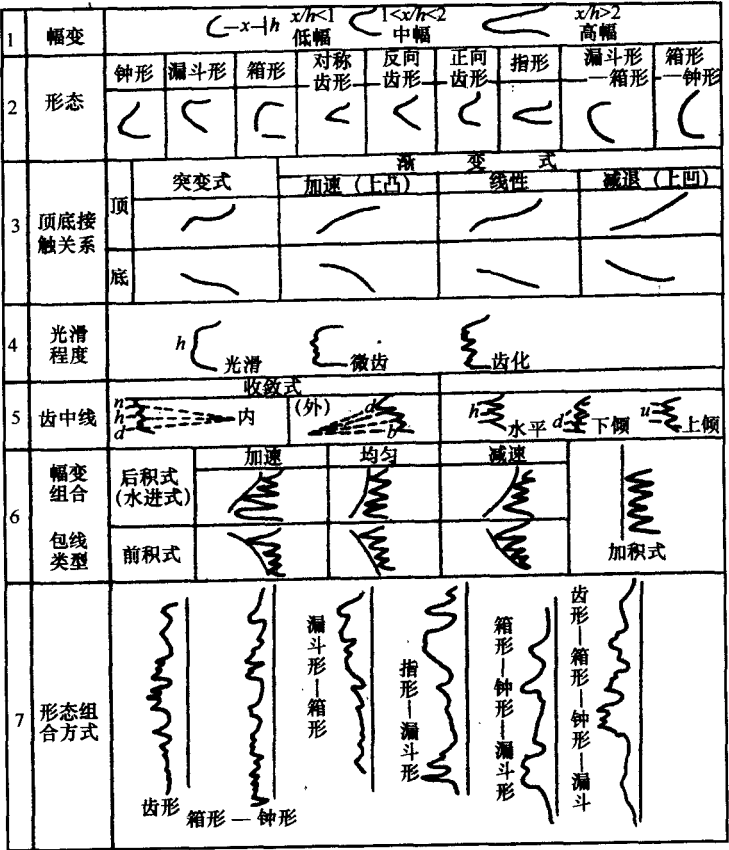 1 幅变 x h x/h<1 低幅 1<x/h<2 中幅 x/h>2 高幅
2 形态 钟形 漏斗形 箱形 对称齿形 反向齿形 正向齿形 指形 漏斗形—箱形 箱形—钟形
3 顶底接触关系
突变式 渐变式
加速（上凸） 线性 减退（上凹）
顶
底
4 光滑程度 h 光滑 微齿 齿化
5 齿中线 收敛式
n h d 内 (外) d b h 水平 d 下倾 u 上倾
6 幅变组合 包线类型
加速 均匀 减速
后积式(水进式)
前积式
加积式
7 形态组合方式
齿形
箱形—钟形
漏斗形—箱形
指形—漏斗形
箱形—钟形—漏斗形
齿形—箱形—钟形—漏斗